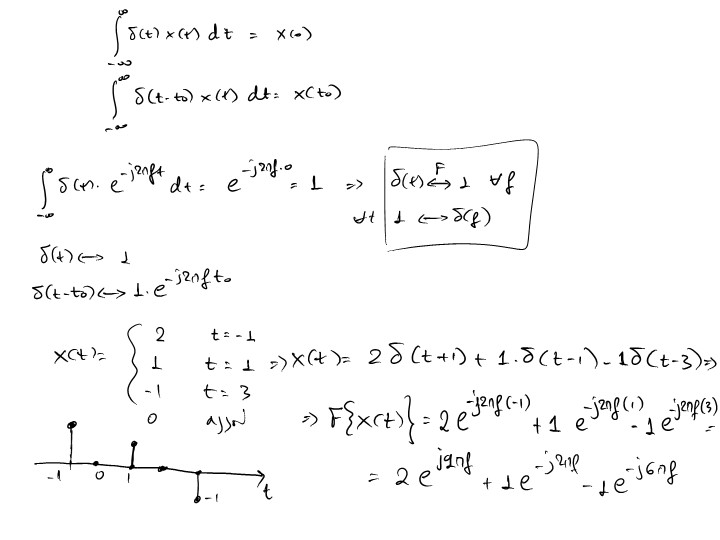 ∫_{-∞}^{∞} δ(t) x(t) dt = x(0)
∫_{-∞}^{∞} δ(t-t0) x(t) dt = x(t0)
∫_{-∞}^{∞} δ(t). e^{-j2πft} dt = e^{-j2πf.0} = 1 => δ(t) <-F-> 1 ∀f
∀t 1 <-> δ(f)
δ(t) <-> 1
δ(t-t0) <-> 1. e^{-j2πft0}
x(t) = { 2 t=-1
1 t=1 => x(t) = 2δ(t+1) + 1.δ(t-1) - 1δ(t-3) =>
-1 t=3
0 αλλού => F{x(t)} = 2e^{-j2πf(-1)} + 1 e^{-j2πf(1)} - 1e^{-j2πf(3)} =
= 2e^{j2πf} + 1e^{-j2πf} - 1e^{-j6πf}
-1 0 1 -1 t